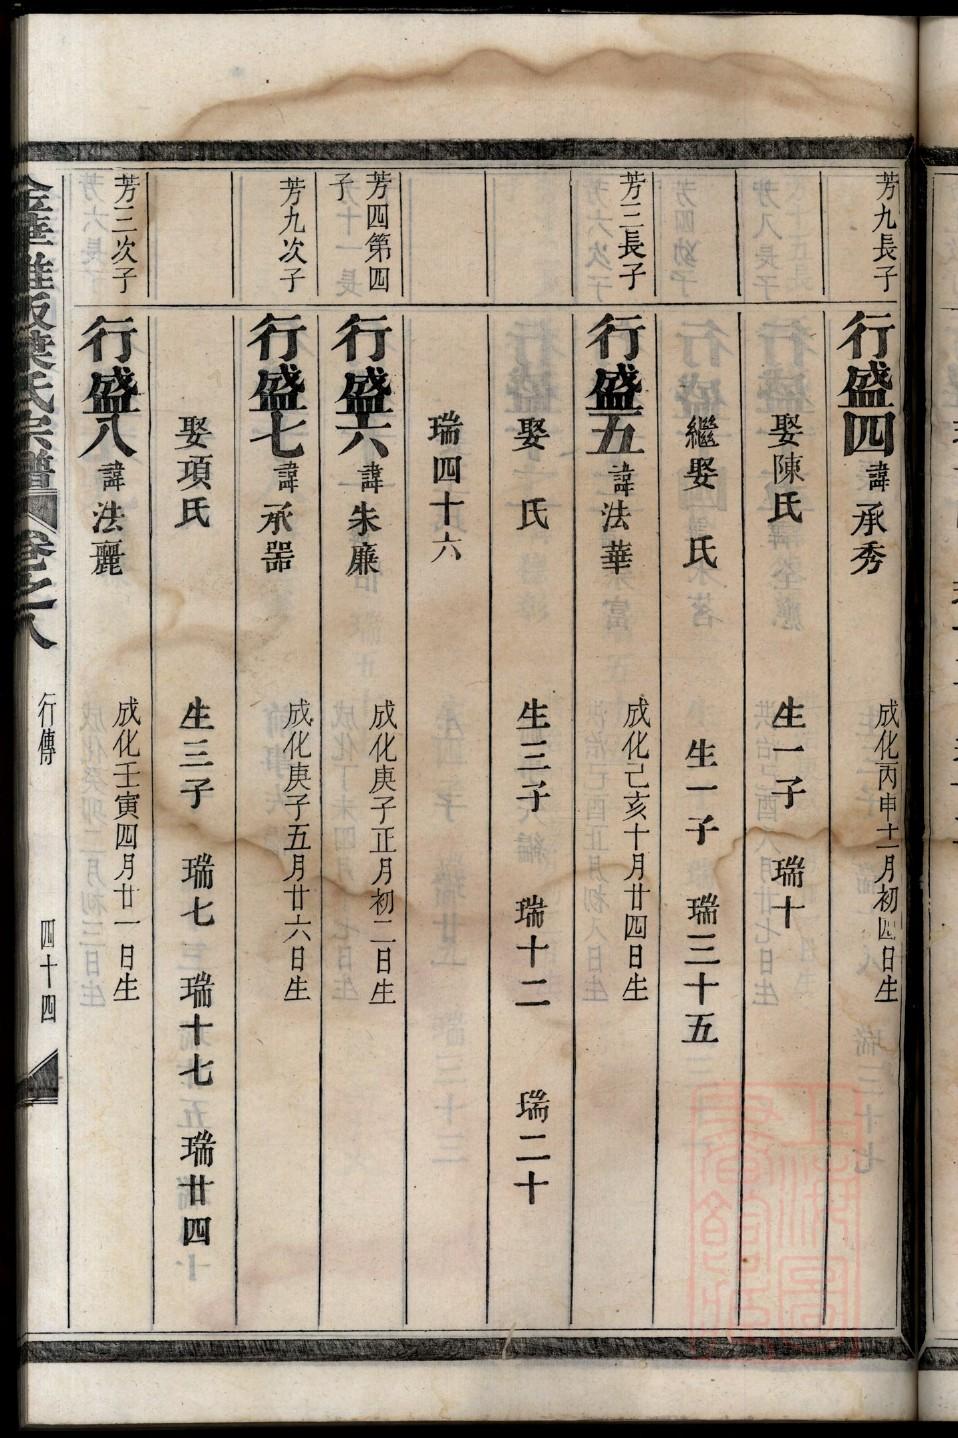 芳九長子
行盛四 諱承秀 成化丙申十一月初四日生
娶陳氏 生一子 瑞十
繼娶 氏 生一子 瑞三十五
芳三長子
行盛五 諱法華 成化己亥十月廿四日生
娶 氏 生三子 瑞十二 瑞二十
瑞四十六
芳四第四子
行盛六 諱朱廉 成化庚子正月初二日生
芳九次子
行盛七 諱承器 成化庚子五月廿六日生
娶項氏 生三子 瑞七 瑞十七 瑞廿四
芳三次子
行盛八 諱法麗 成化壬寅四月廿一日生
葉氏宗譜 卷之八 行傳 四十四